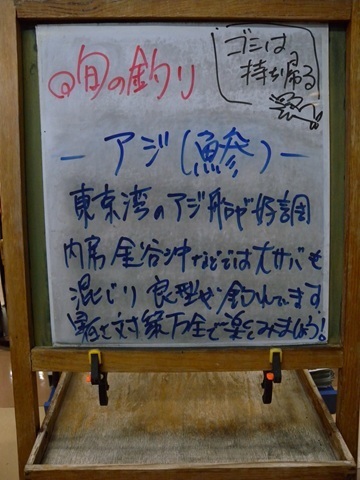 旬の釣り
ゴミは
持ち帰る
ー アジ(鯵) ー
東京湾のアジ船が好調
内房 金谷沖などでは大サバも
混じり 良型が釣れています
暑さ対策万全で楽しみましょう!